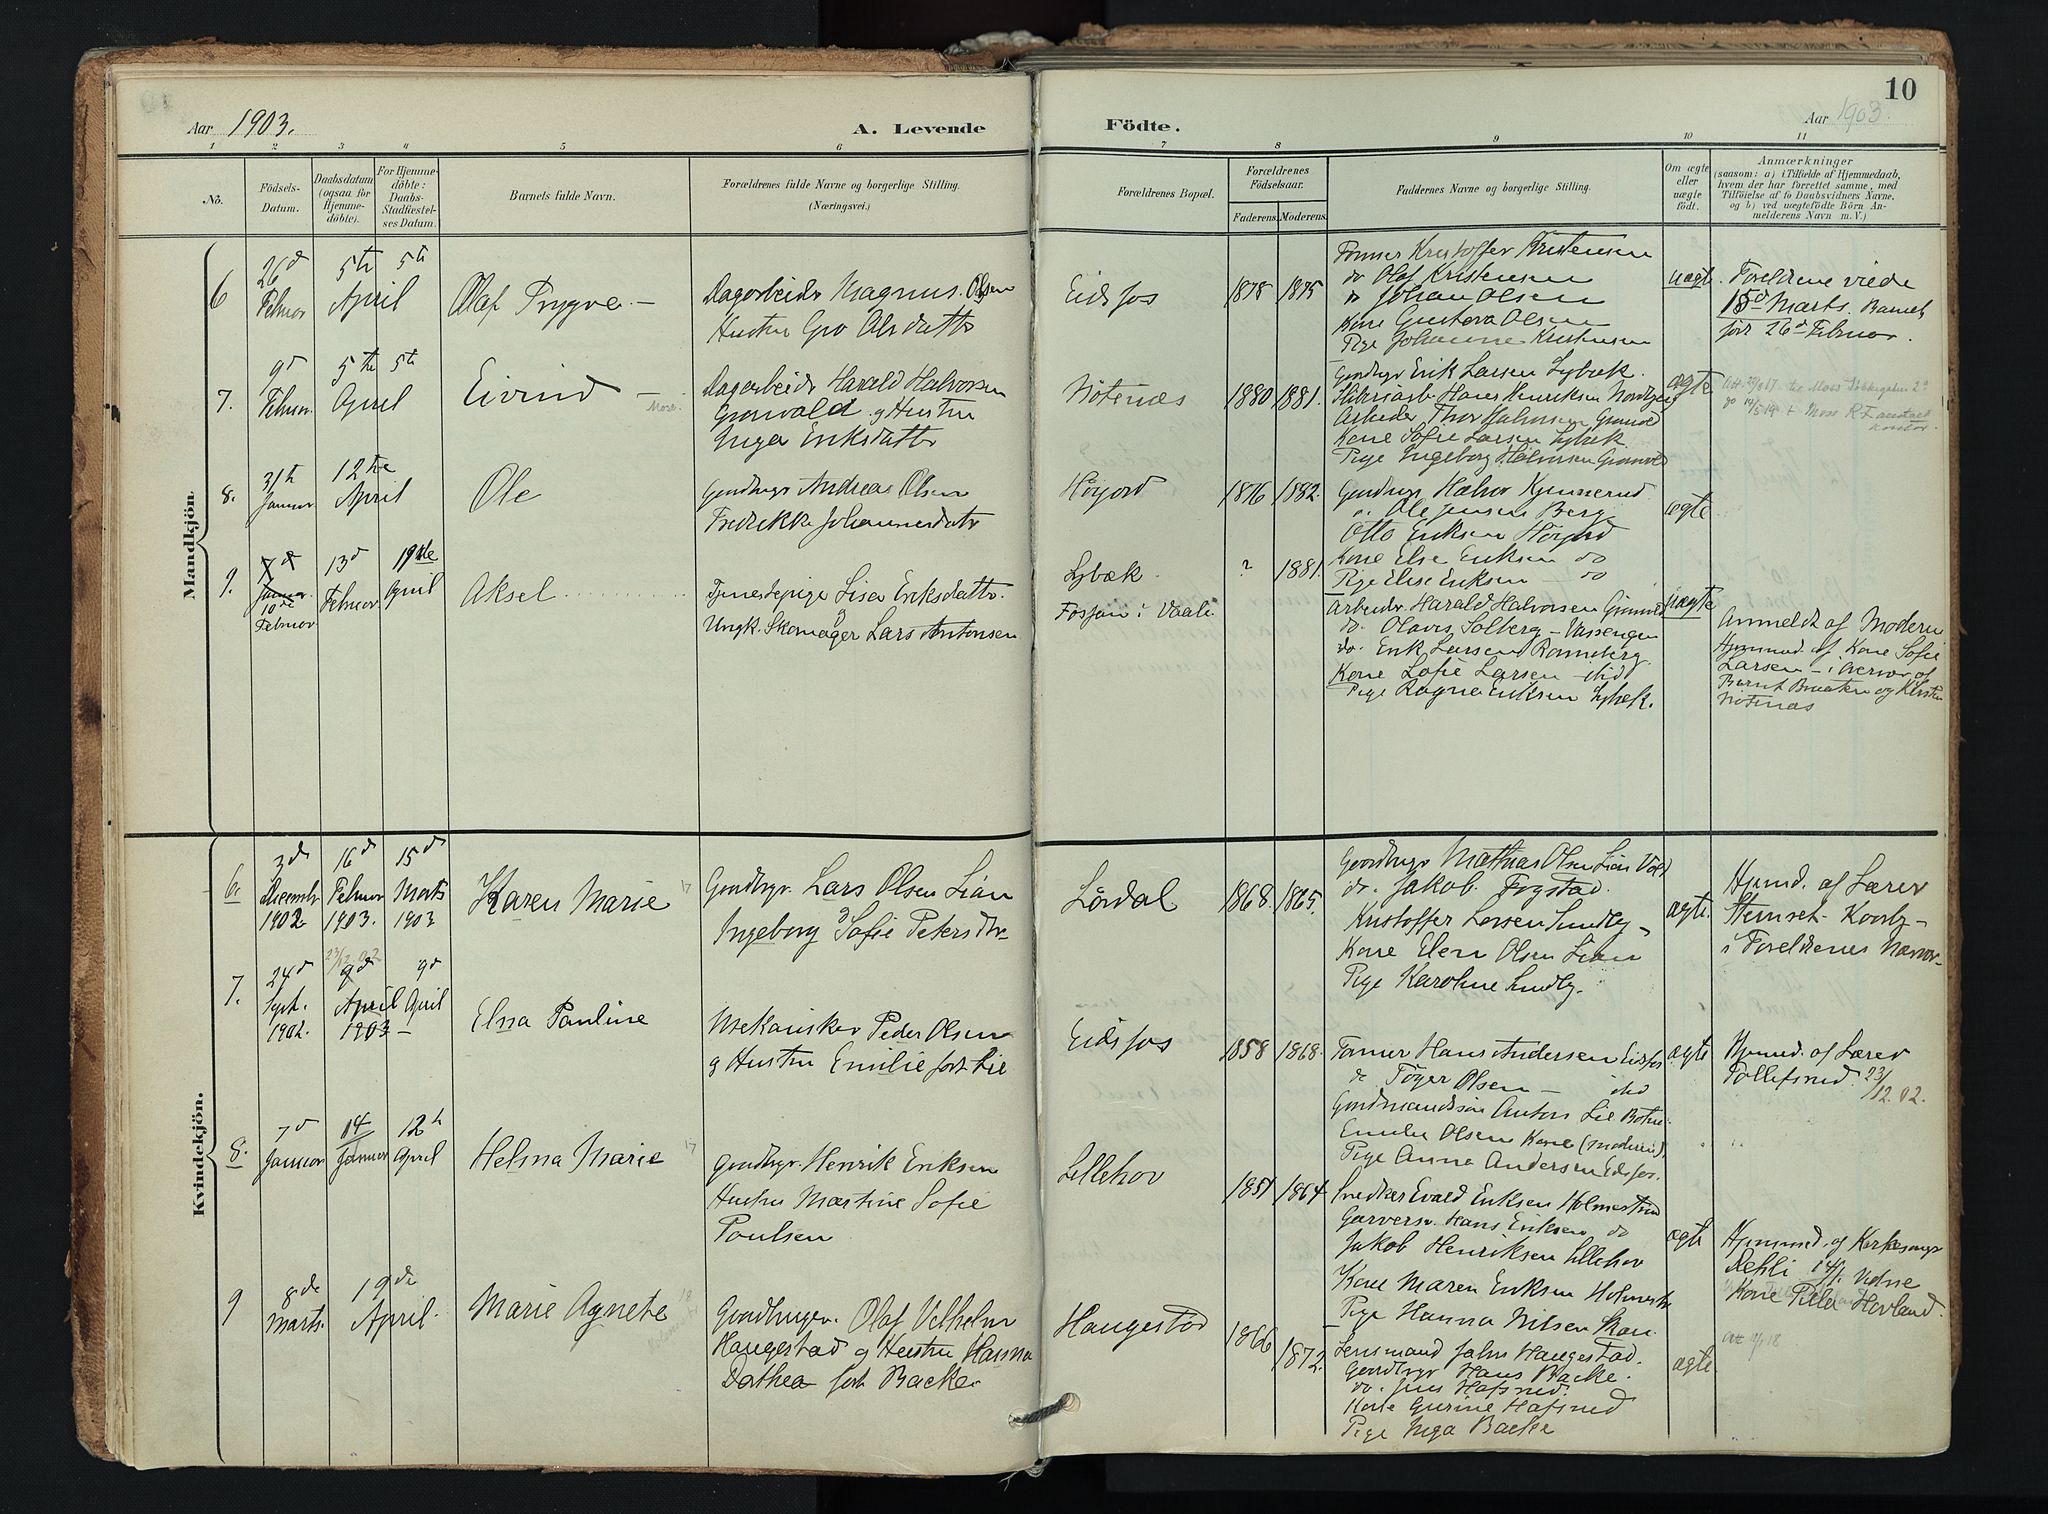 Aar 1903.
A. Levende
Födte.
10
Aar 1903.
1 2 3 4 5 6 7 8 9 10 11
No.
Födsels-
Datum.
Daabsdatum
(ogsaa för
Hjemme-
döbte).
For Hjemme-
döbte:
Daabs-
Stadfæstel-
ses Datum.
Barnets fulde Navn.
Forældrenes fulde Navne og borgerlige Stilling.
(Næringsvei.)
Forældrenes Bopæl.
Forældrenes
Födselsaar.
Faderens. Moderens.
Faddernes Navne og borgerlige Stilling.
Om ægte
eller
uægte
födt.
Anmærkninger
(saasom: a) i Tilfælde af Hjemmedaab,
hvem der har forrettet samme, med
Tilföielse af to Daabsvidners Navne,
og b) ved uægtefödte Börn An-
melderens Navn m. V.)
Mandkjön.
6
26d
Februar
5te
April
5te
Olaf Trygve
Dagarbeidr Magnus Olsen
Hustru Gro Olsdattr
Eidsfos
1878
1875
Former Kristoffer Kristensen
do Olaf Kristensen
do Johan Olsen
Kone Gustava Olsen
Pige Johanne Kristensen
uægte
Foreldrene viede
15d Marts. Barnet
født 26d Februar.
7.
9d
Februar
5te
April
5te
Eivind
Dagarbeidr Harald Halvorsen
Grønvold og Hustru
Inga Eriksdattr
Nötenæs
1880
1881.
Gaardbrgr Erik Larsen Lybæk.
Hans Henriksen
Arbeider Thor Halvorsen Grønvold
Kone Sofie Larsen Lybæk
Pige Ingeborg Halvorsen Grønvold
ægte
8.
31te
Januar
12te
April
Ole
Gaardbrgr Andreas Olsen
Fredrikke Johannesdatr
Høijord
1876
1882.
Gaardbrgr Halvor Kjennerud
do. Ole Jensen Berg
Otto Eriksen Høijord
Kone Else Eriksen do
Pige Elise Eriksen - do
ægte
9.
7d
Januar
10de
Februar
13d
Februar
19de
April
Aksel
Tjenestepige Lisa Eriksdattr.
og
Ungk. Skomager Lars Antonsen
Lybæk.
Fossan i Vaale
?
1881.
Arbeidr. Harald Halvorsen Grønvold
do. Olavis Solberg - Vassengen
do. Erik Larsen Ramberg
Kone Sofie Larsen - ibid
Pige Ragna Eriksen Lybæk.
uægte
Anmeldt af Moderen
Hjemmed. af Kone Sofie
Larsen - i Overvær af
Bernt Braaten og Kirsten
Nötenæs
Kvindekjön.
6.
3d
Decembr
1902
16d
Februar
1903.
15d
Marts
1903
Karen Marie
Gaardbrgr. Lars Olsen Lian
og
Ingeborg Sofie Petersdtr
Lørdal
1868.
1865.
Gaardbrgr Mathias Olsen Lian
do. Jakob Frogstad.
Kristoffer Larsen Sundby
Kone Elen Olsen Lian
Pige Karoline Sundby.
ægte.
Hjemmd. af Lærer
Stenset -
i Foreldrenes Nærvær
7.
24d
Sept.
1902.
23/12 02
9d
April
1903
9d
April
Elna Pauline
Mekaniker Peder Olsen
og Hustru Emilie født Lie
Eidsfos
1858
1868.
Former Hans Andersen Eidsfos
do Tøger Olsen - ibd
Gaardmandssøn Anton Lie Botne
Emilie Olsen Kone (Moderen)
Pige Anna Andersen Eidsfos.
ægte
Hjemmed. af Lærer
Tollefsrud. 23/12.02.
8.
7d
Januar
14
Januar
12te
April
Helma Marie
Gaardbrgr. Henrik Eriksen
Hustru Martine Sofie
Poulsen
Lillehov
1851
1864
Snedker Evald Eriksen Holmestrand
Garversv. Hans Eriksen do
Jakob Henriksen Lillehov
Kone Maren Eriksen Holmestr.
Pige Hanna Nilsen Skau
ægte
Hjemmed. af Kirkesangr
Dehli 14/1. Vidne
Kone Hovland.
9
8de
Marts.
19de
April.
Marie Agnete
Gaardbruger. Olaf Vilhelm
Haugestad og Hustru Hanna
Dorthea født Backe
Haugestad
1866
1872.
Lensmand Jahn Haugestad.
Gaardbrgr Hans Backe.
do. Jens Hafsrud.
Kone Gurine Hafsrud
Pige Inga Backe
ægte.